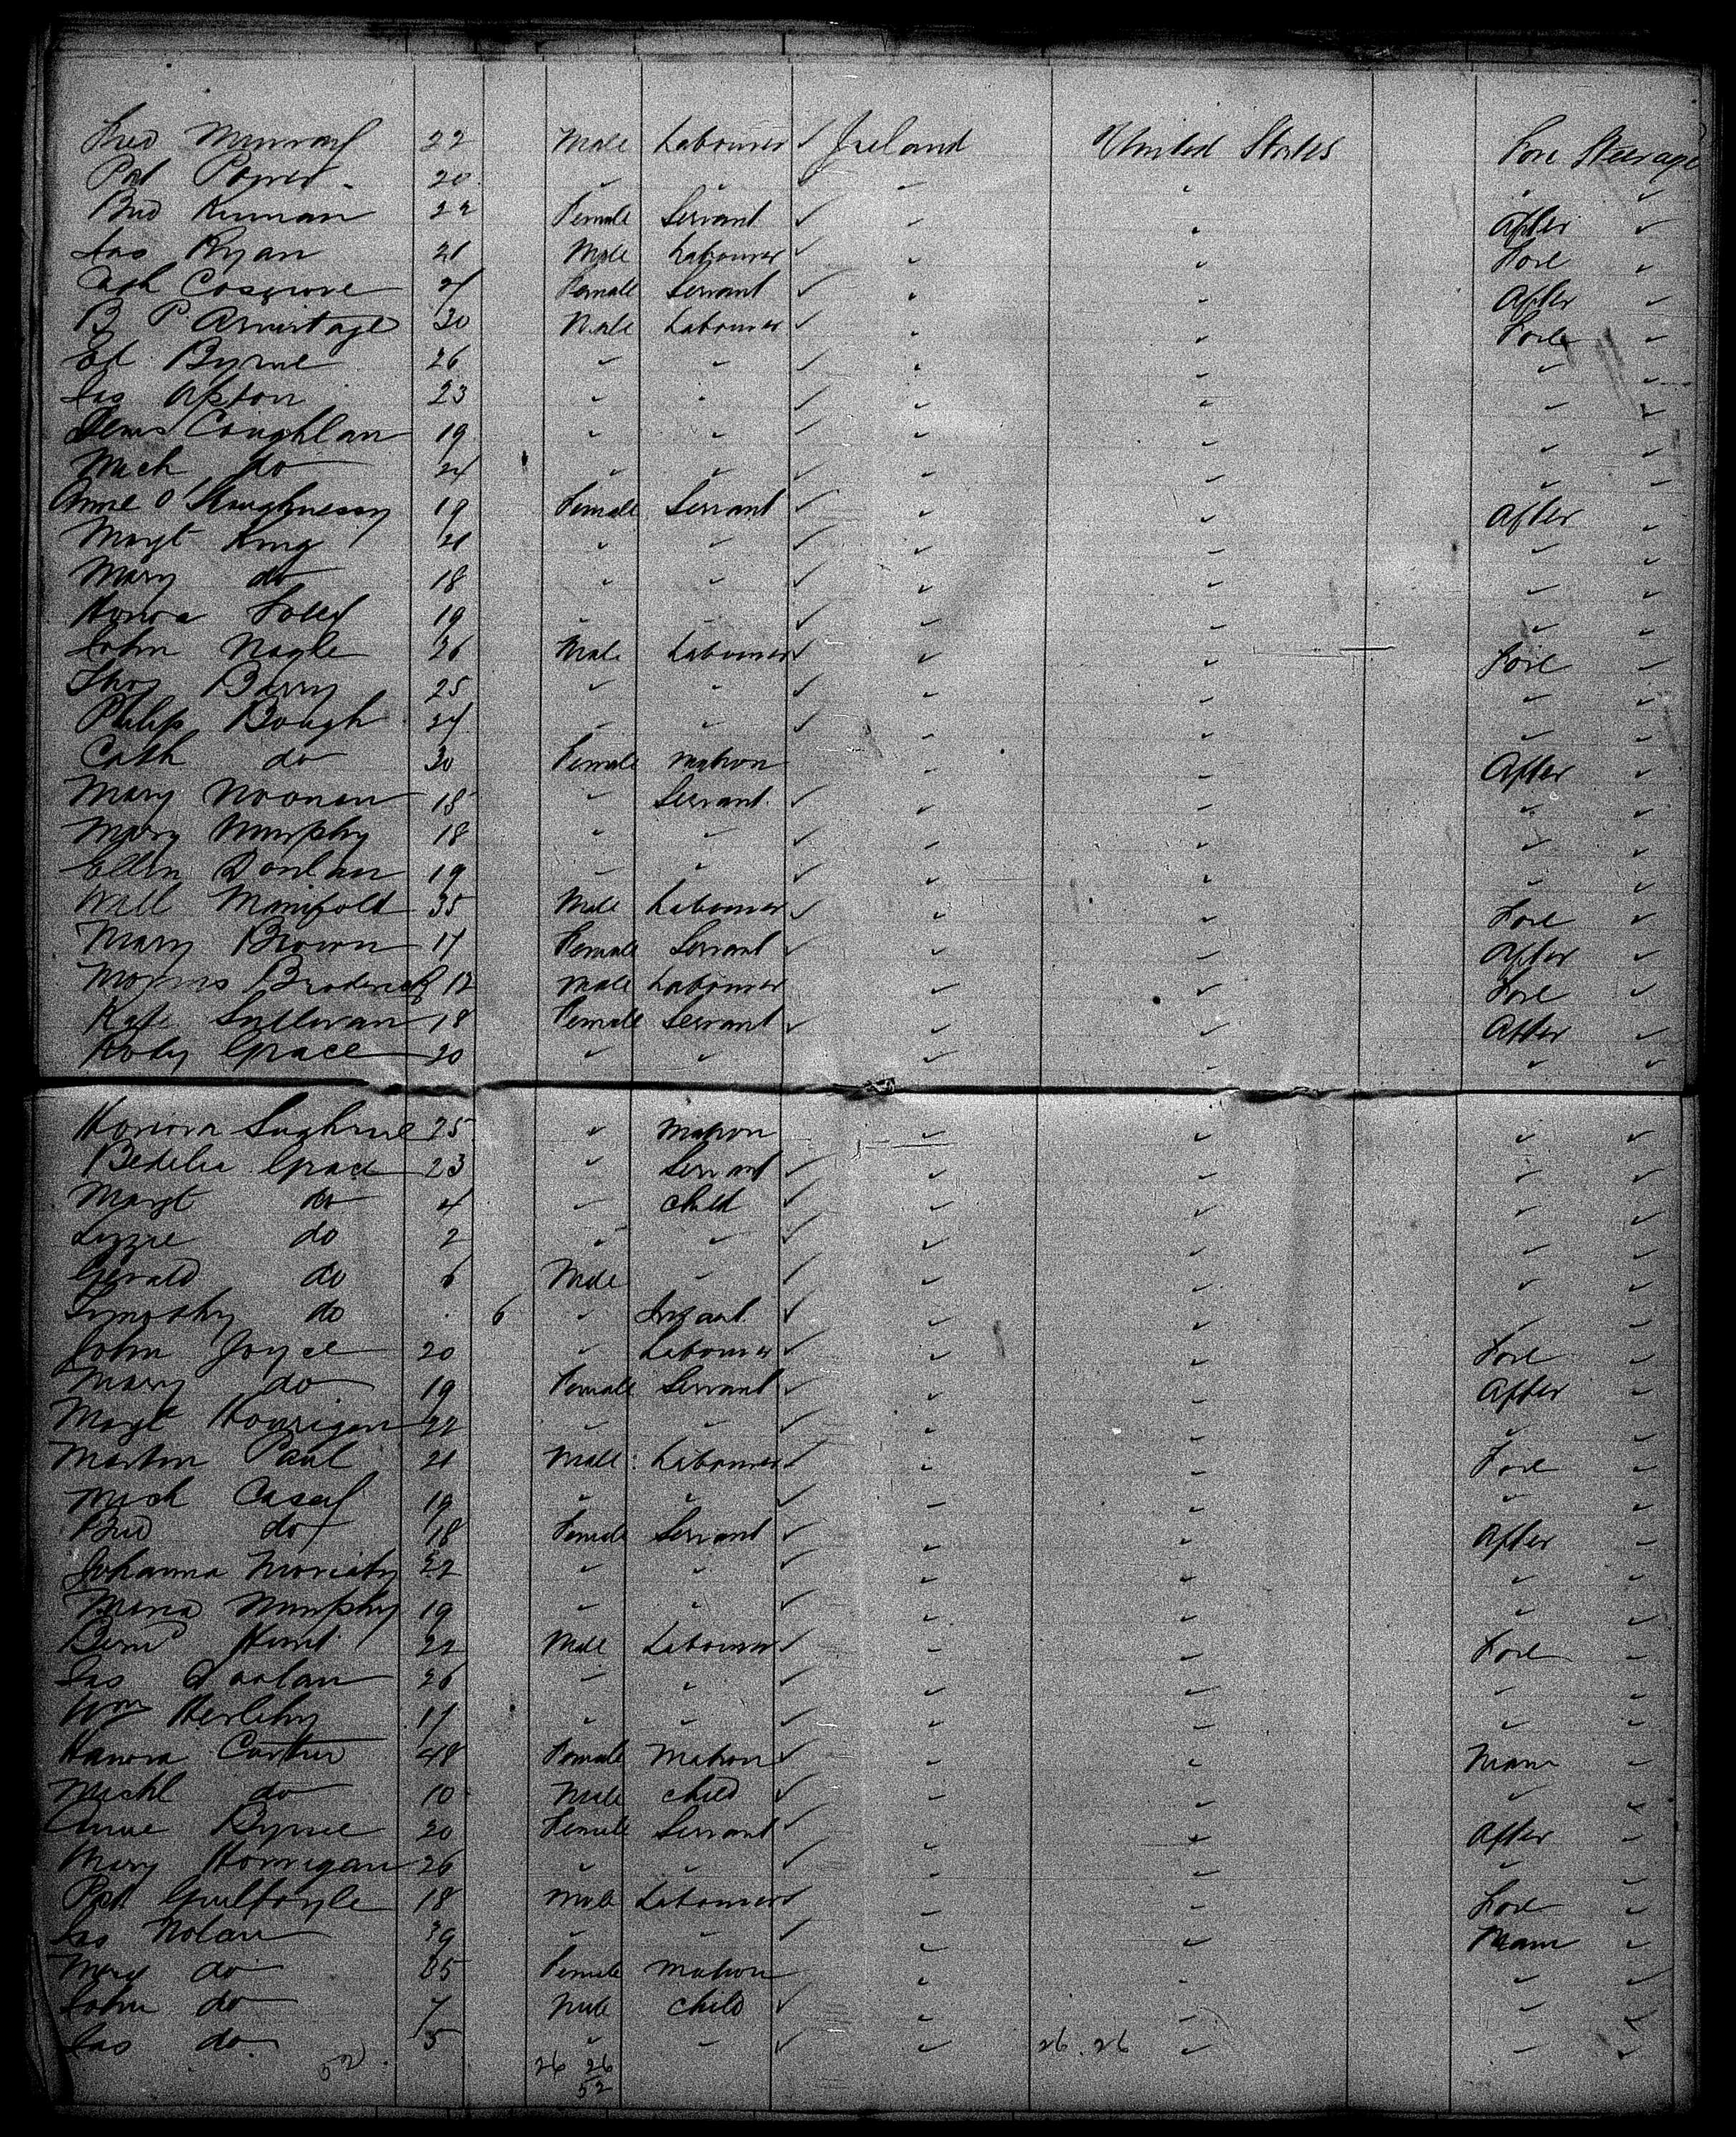 Fred Murray 22 Male Labourer ✓ Ireland United States Fore Steerage
Pat Power 20 " " ✓ " " " "
Brd Kernan 22 Female Servant ✓ " " After "
Jas Ryan 21 Male Labourer ✓ " " Fore "
Cath Cosgrove 21 Female Servant ✓ " " After "
B P Armitage 30 Male Labourer ✓ " " Fore "
Ed Byrne 26 " " ✓ " " " "
Jas Upton 23 " " ✓ " " " "
Denis Coughlan 19 " " ✓ " " " "
Mich do 24 " " ✓ " " " "
Anne O'Shaughnessy 19 Female Servant ✓ " " After "
Margt King 21 " " ✓ " " " "
Mary do 18 " " ✓ " " " "
Honora Foley 19 " " ✓ " " " "
John Nagle 26 Male Labourer ✓ " " Fore "
Thos Barry 25 " " ✓ " " " "
Philip Bough 24 " " ✓ " " " "
Cath do 30 Female Matron " " After "
Mary Noonan 18 " Servant ✓ " " " "
Mary Murphy 18 " " ✓ " " " "
Ellen Donlan 19 " " ✓ " " " "
Will Manifold 35 Male Labourer ✓ " " Fore "
Mary Brown 17 Female Servant ✓ " " After "
Morris Broderick 12 Male Labourer " " Fore "
Kate Sullivan 18 Female Servant ✓ " " After "
Roby Grace 20 " " " " " "
Honora Sughrue 25 " Matron " " " "
Bedelia Grace 23 " Servant ✓ " " " "
Margt do 4 " Child ✓ " " " "
Lizzie do 2 " " ✓ " " " "
Gerald do 6 Male " ✓ " " " "
Timothy do 6 " Infant ✓ " " " "
John Joyce 20 " Labourer ✓ " " Fore "
Mary do 19 Female Servant ✓ " " After "
Margt Hourigan 22 " " ✓ " " " "
Martin Paul 21 Male Labourer ✓ " " Fore "
Mich Casey 19 " " ✓ " " " "
Brd do 18 Female Servant ✓ " " After "
Johanna Moriaty 22 " " ✓ " " " "
Maria Murphy 19 " " ✓ " " " "
Bernd Hunt 22 Male Labourer ✓ " " Fore "
Jas Doolan 26 " " ✓ " " " "
Wm Herlihy 17 " " ✓ " " " "
Hanora Carther 48 Female Matron ✓ " " Main "
Michl do 10 Male Child ✓ " " " "
Anne Byrne 20 Female Servant ✓ " " After "
Mary Horrigan 26 " " ✓ " " " "
Pat Guilfoyle 18 Male Labourer ✓ " " Fore "
Jas Nolan 39 " " ✓ " " Main "
Mary do 35 Female Matron " " " "
John do 7 Male Child ✓ " " " "
Jas do 5 " " ✓ " 26.26 " " "
52 26 26
52